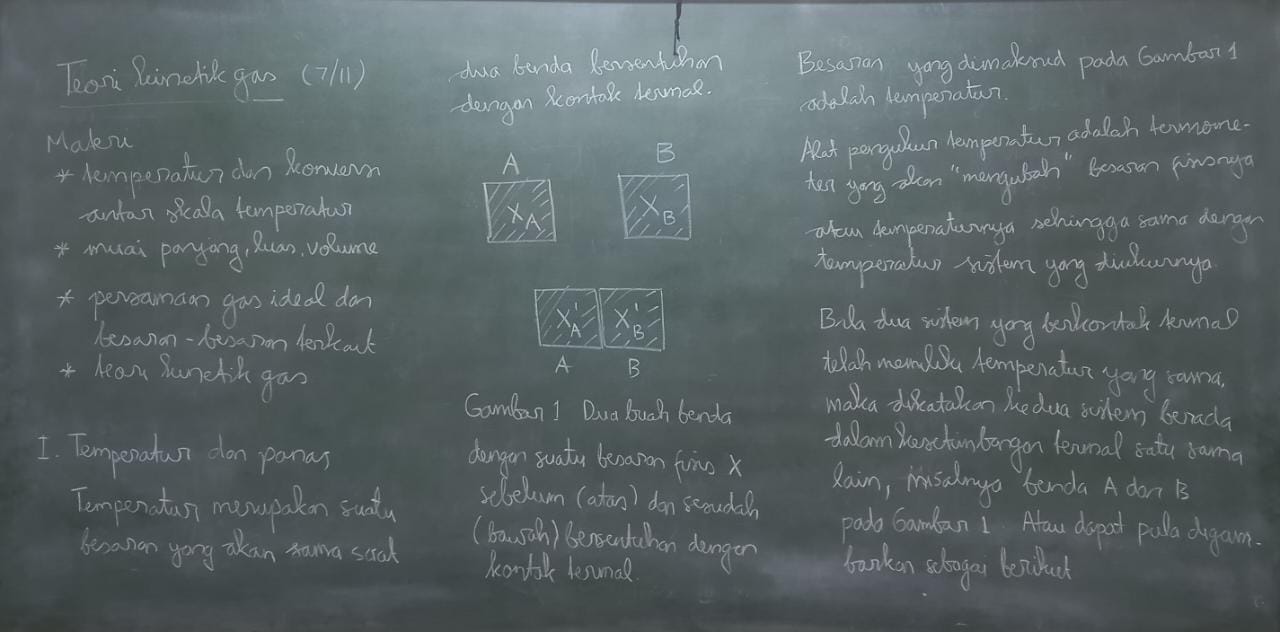 Teori kinetik gas (7/11)
Materi
* temperatur dan konversi
antar skala temperatur
* muai panjang, luas, volume
* persamaan gas ideal dan
besaran-besaran terkait
* teori kinetik gas
I. Temperatur dan panas
Temperatur merupakan suatu
besaran yang akan sama saat
dua benda bersentuhan
dengan kontak termal.
A B
X_A X_B
X'_A X'_B
A B
Gambar 1 Dua buah benda
dengan suatu besaran fisis X
sebelum (atas) dan sesudah
(bawah) bersentuhan dengan
kontak termal.
Besaran yang dimaksud pada Gambar 1
adalah temperatur.
Alat pengukur temperatur adalah termome-
ter yang akan "mengubah" besaran fisisnya
atau temperaturnya sehingga sama dengan
temperatur sistem yang diukurnya.
Bila dua sistem yang berkontak termal
telah memiliki temperatur yang sama,
maka dikatakan kedua sistem berada
dalam kesetimbangan termal satu sama
lain, misalnya benda A dan B
pada Gambar 1. Atau dapat pula digam-
barkan sebagai berikut